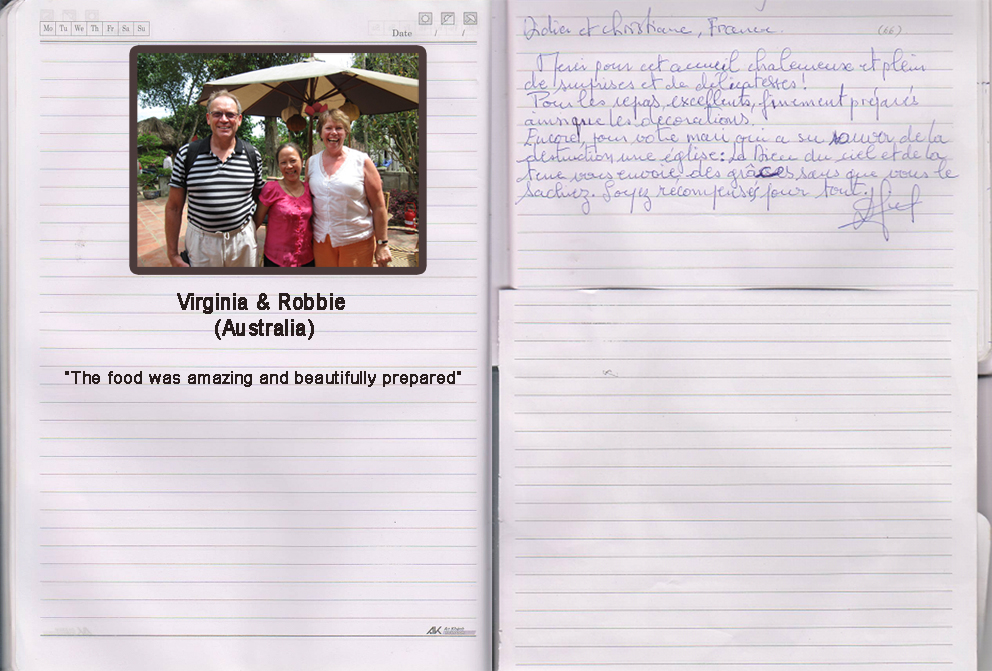 Mo Tu We Th Fr Sa Su
Date / /
Virginia & Robbie
(Australia)
"The food was amazing and beautifully prepared"
AK An Khánh
Didier et Christiane, France. (66)
Merci pour cet accueil chaleureux et plein
de surprises et de délicatesses!
Pour les repas, excellents, finement préparés
ainsi que les décorations.
Encore, pour votre mari qui a su sauver de la
destruction une église: le Dieu du ciel et de la
terre vous envoie des grâces sans que vous le
sachiez. Soyez récompensés pour tout!